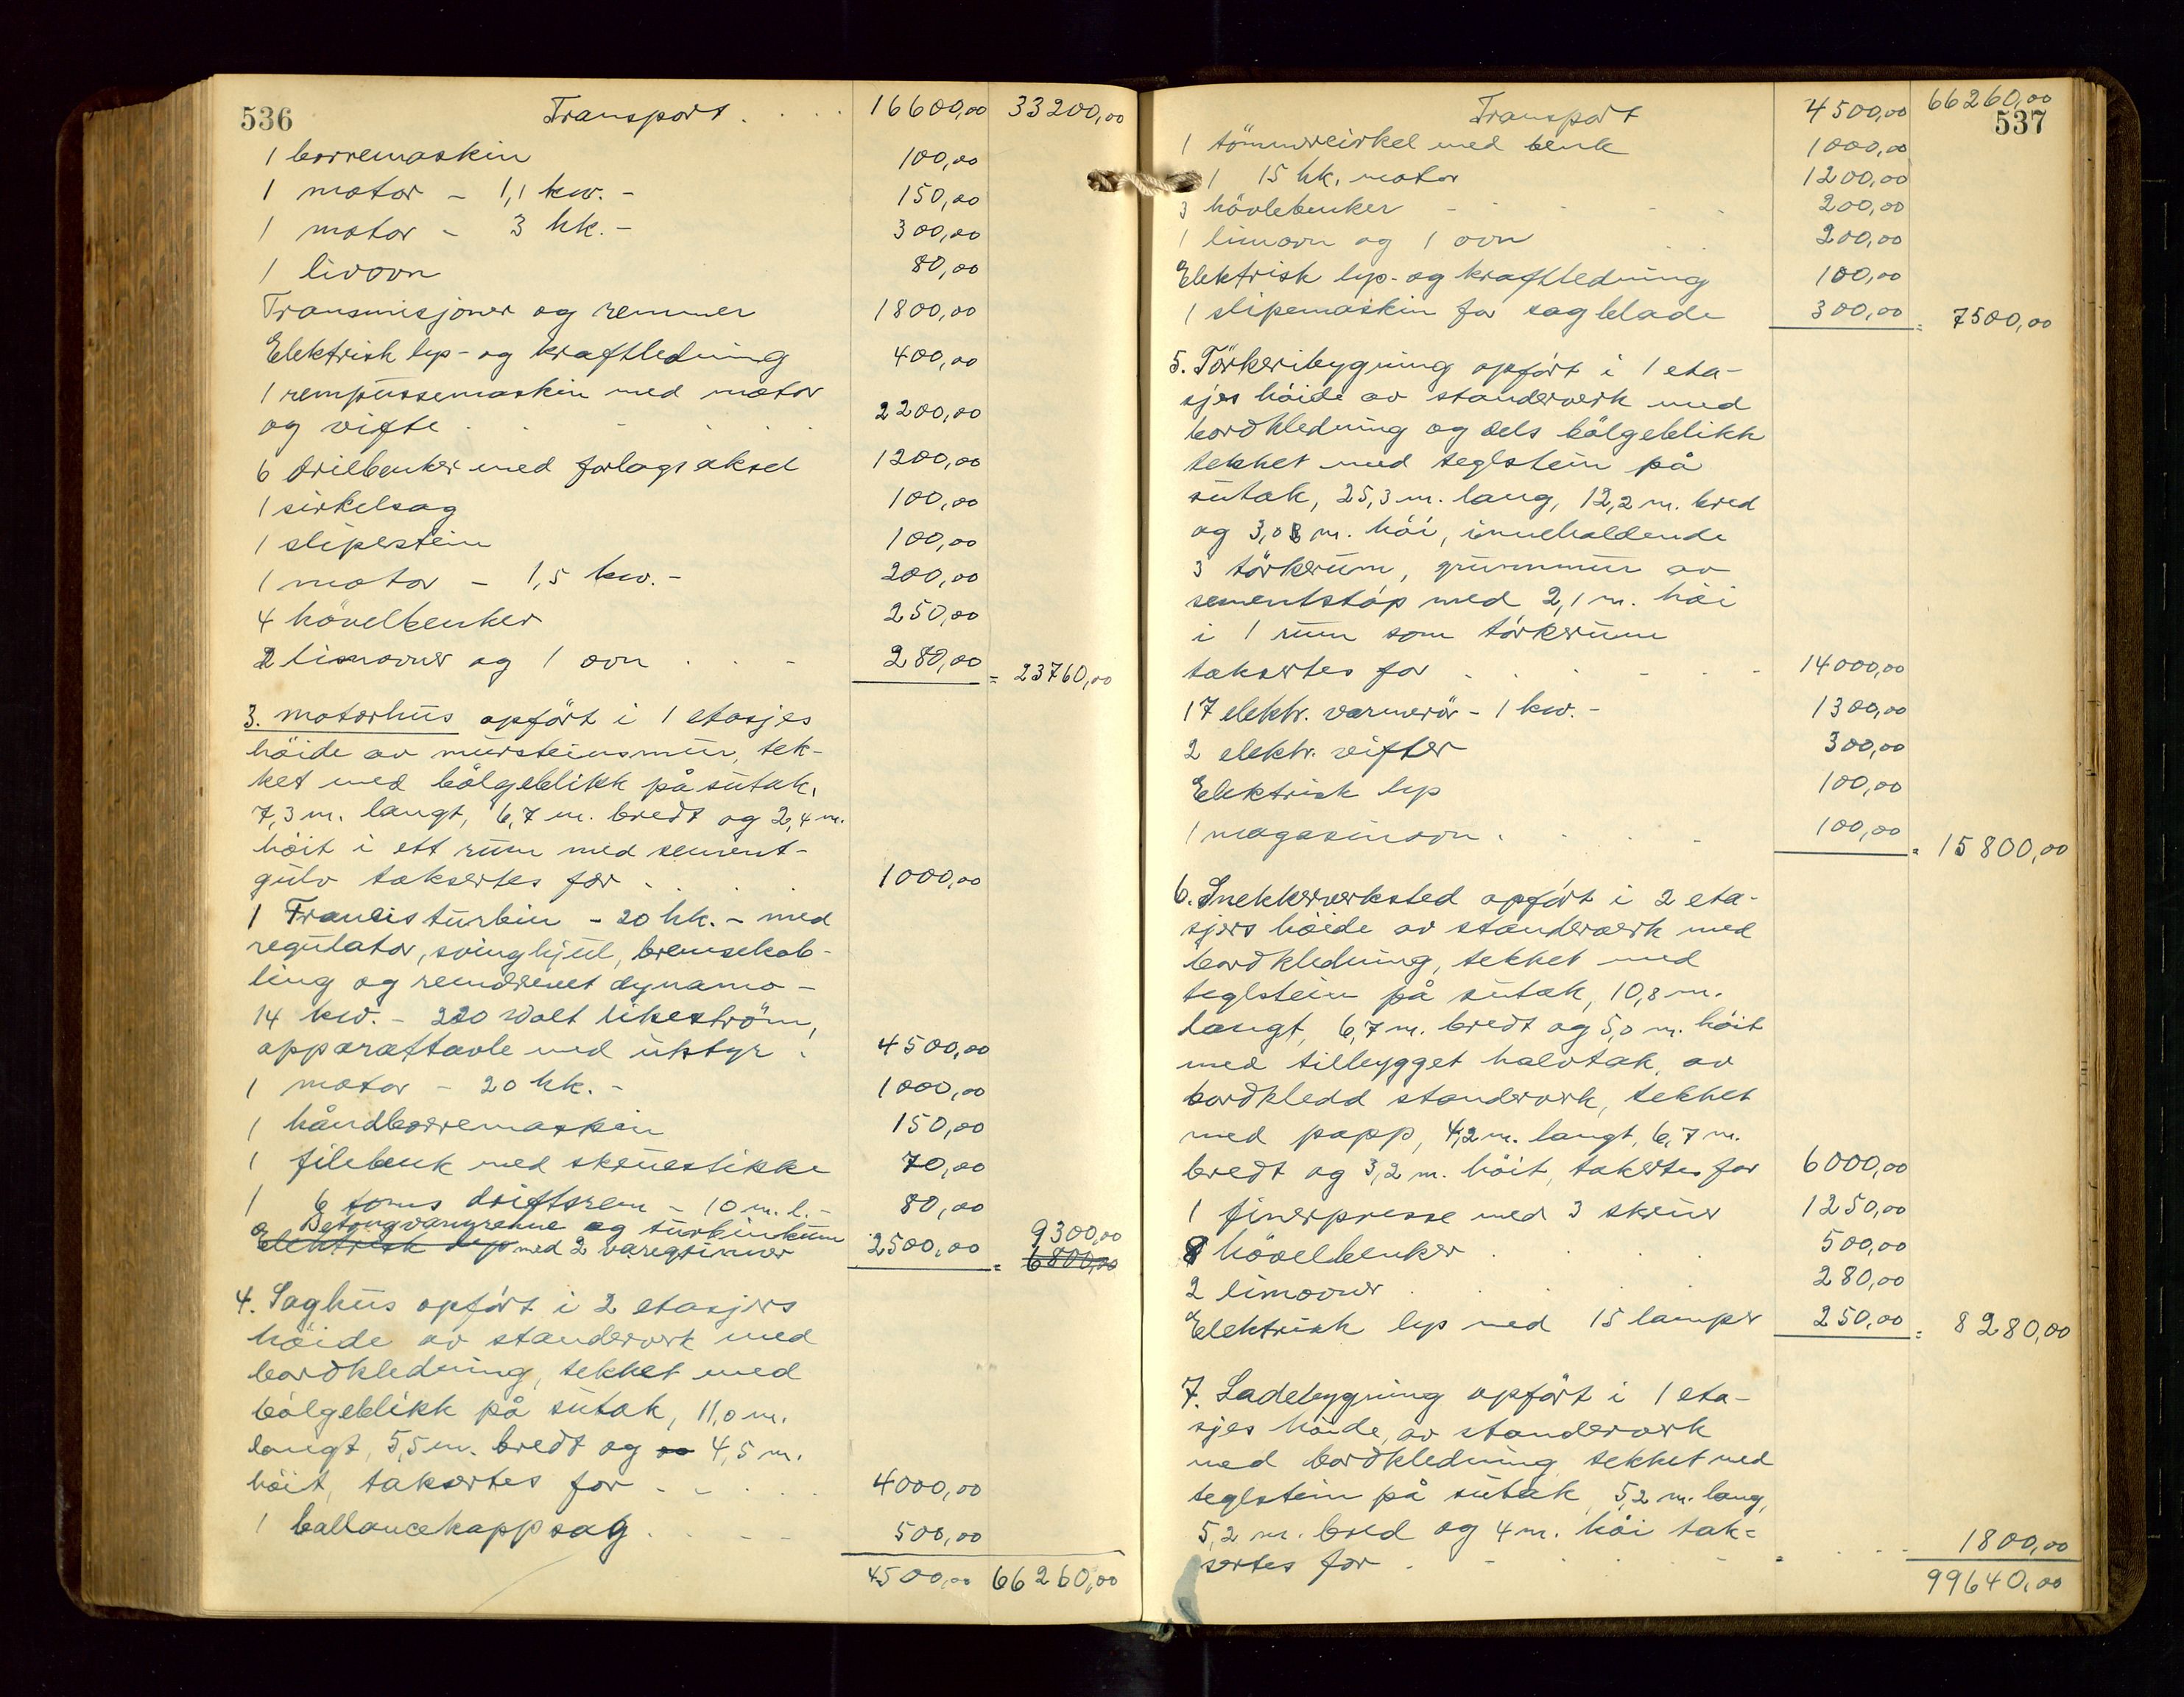 536 Transport . . . . 16600,00 33200,00
1 borremaskin 100,00
1 motor - 1,1 kw. - 150,00
1 motor - 3 hk. - 300,00
1 livovn 80,00
Transmisjoner og remmer 1800,00
Elektrisk lys- og kraftledning 400,00
1 rempussemaskin med motor
og vifte . . . . . . 2200,00
6 drilbenker med forlagsaksel 1200,00
1 sirkelsag 100,00
1 slipestein 100,00
1 motor - 1,5 kw. - 200,00
4 hövelbenker 250,00
2 limovner og 1 ovn . . - 280,00 = 23760,00
3. Motorhus opfört i 1 etasjes
höide av mursteinsmur, tek-
ket med bölgeblikk på sutak,
7,3 m. langt, 6,7 m. bredt og 2,4 m.
höit i ett rum med sement-
gulv taksertes for . . . . 1000,00
1 Francis turbin - 20 hk. - med
regulator, svinghjul, bremsekob-
ling og remdrevet dynamo -
14 kw. - 220 volt likeström,
apparattavle med utstyr . 4500,00
1 motor - 20 hk. - 1000,00
1 håndborremaskin 150,00
1 filebenk med skruestikke 70,00
1 6 toms driftsrem - 10 m. l. - 80,00
Betongvannrenne og turbinkum 9300,00
Elektrisk lys med 2 varegrinner 2500,00 = 6800,00
4. Saghus opfört i 2 etasjers
höide av standerverk med
bordkledning, tekket med
bölgeblikk på sutak, 11,0 m.
langt, 5,5 m. bredt og 4,5 m.
höit, taksertes for . . . . . 4000,00
1 ballancekappsag . . . . 500,00
4500,00 66260,00
Transport 4500,00 66260,00
537
1 tömmersirkel med benk 1000,00
1 15 hk. motor 1200,00
3 hövlebenker . . . . 200,00
1 limovn og 1 ovn . . 200,00
Elektrisk lys- og kraftledning 100,00
1 slipemaskin for sagblade 300,00 = 7500,00
5. Törkeribygning opfört i 1 eta-
sjes höide av standerverk med
bordkledning og dels bölgeblikk
tekket med teglstein på
sutak, 25,3 m. lang, 12,2 m. bred
og 3,08 m. höi, inneholdende
3 törkerum, grunnmur av
sementstöp med 2,1 m. höi
i 1 rum som törkerum
taksertes for . . . . - - 14000,00
17 elektr. varmerör - 1 kw. - 1300,00
2 elektr. vifter 300,00
Elektrisk lys 100,00
1 magasinovn . . . - 100,00 = 15800,00
6. Snekkerverksted opfört i 2 eta-
sjers höide av standerverk med
bordkledning, tekket med
teglstein på sutak, 10,8 m.
langt, 6,7 m. bredt og 5,0 m. höit
med tilbygget halvtak, av
bordkledd standerverk, tekket
med papp, 4,2 m. langt, 6,7 m.
bredt og 3,2 m. höit, taksertes for 6000,00
1 finerpresse med 3 skruer 1250,00
8 hövelbenker . . . . 500,00
2 limovner . . . . . 280,00
Elektrisk lys med 15 lamper 250,00 = 8280,00
7. Ladebygning opfört i 1 eta-
sjes höide, av standerverk
med bordkledning tekket med
teglstein på sutak, 5,2 m. lang,
5,2 m. bred og 4 m. höi tak-
sertes for . . . . . . . . 1800,00
99640,00